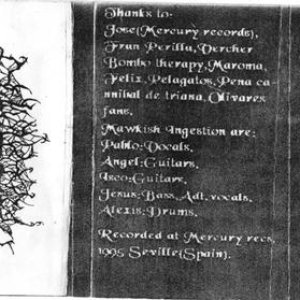 Thanks to-
Jose(Mercury records),
Fran Perilla, Vercher
Bombo therapy, Maroma,
Felix, Pelagatos, Pena ca-
nnibal de triana, Olivares
fans.
Mawkish Ingestion are:
Pablo:Vocals,
Angel:Guitars,
Isco:Guitars,
Jesus:Bass, Adt. vocals,
Alexis:Drums.
Recorded at Mercury recs,
1995 Seville(Spain).